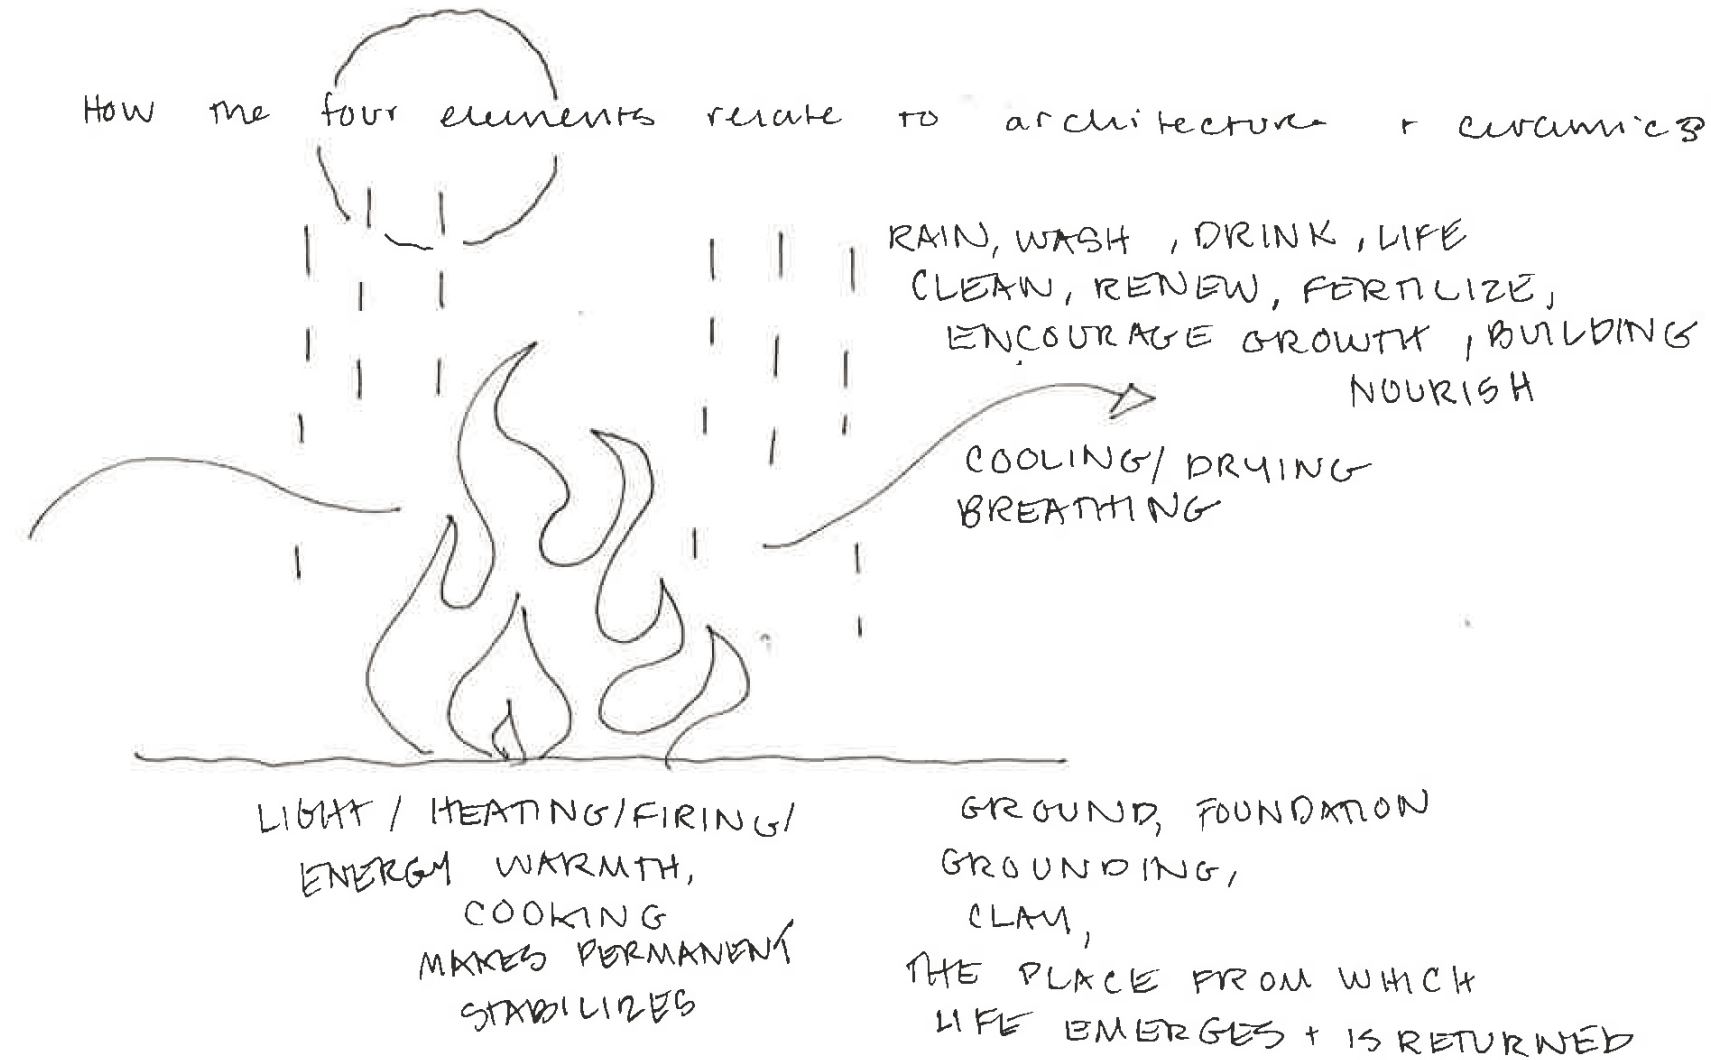 How the four elements relate to architecture + ceramics
RAIN, WASH, DRINK, LIFE
CLEAN, RENEW, FERTILIZE,
ENCOURAGE GROWTH, BUILDING
NOURISH
COOLING/ DRYING
BREATHING
LIGHT / HEATING/FIRING/
ENERGY WARMTH,
COOKING
MAKES PERMANENT
STABILIZES
GROUND, FOUNDATION
GROUNDING,
CLAY,
THE PLACE FROM WHICH
LIFE EMERGES + IS RETURNED